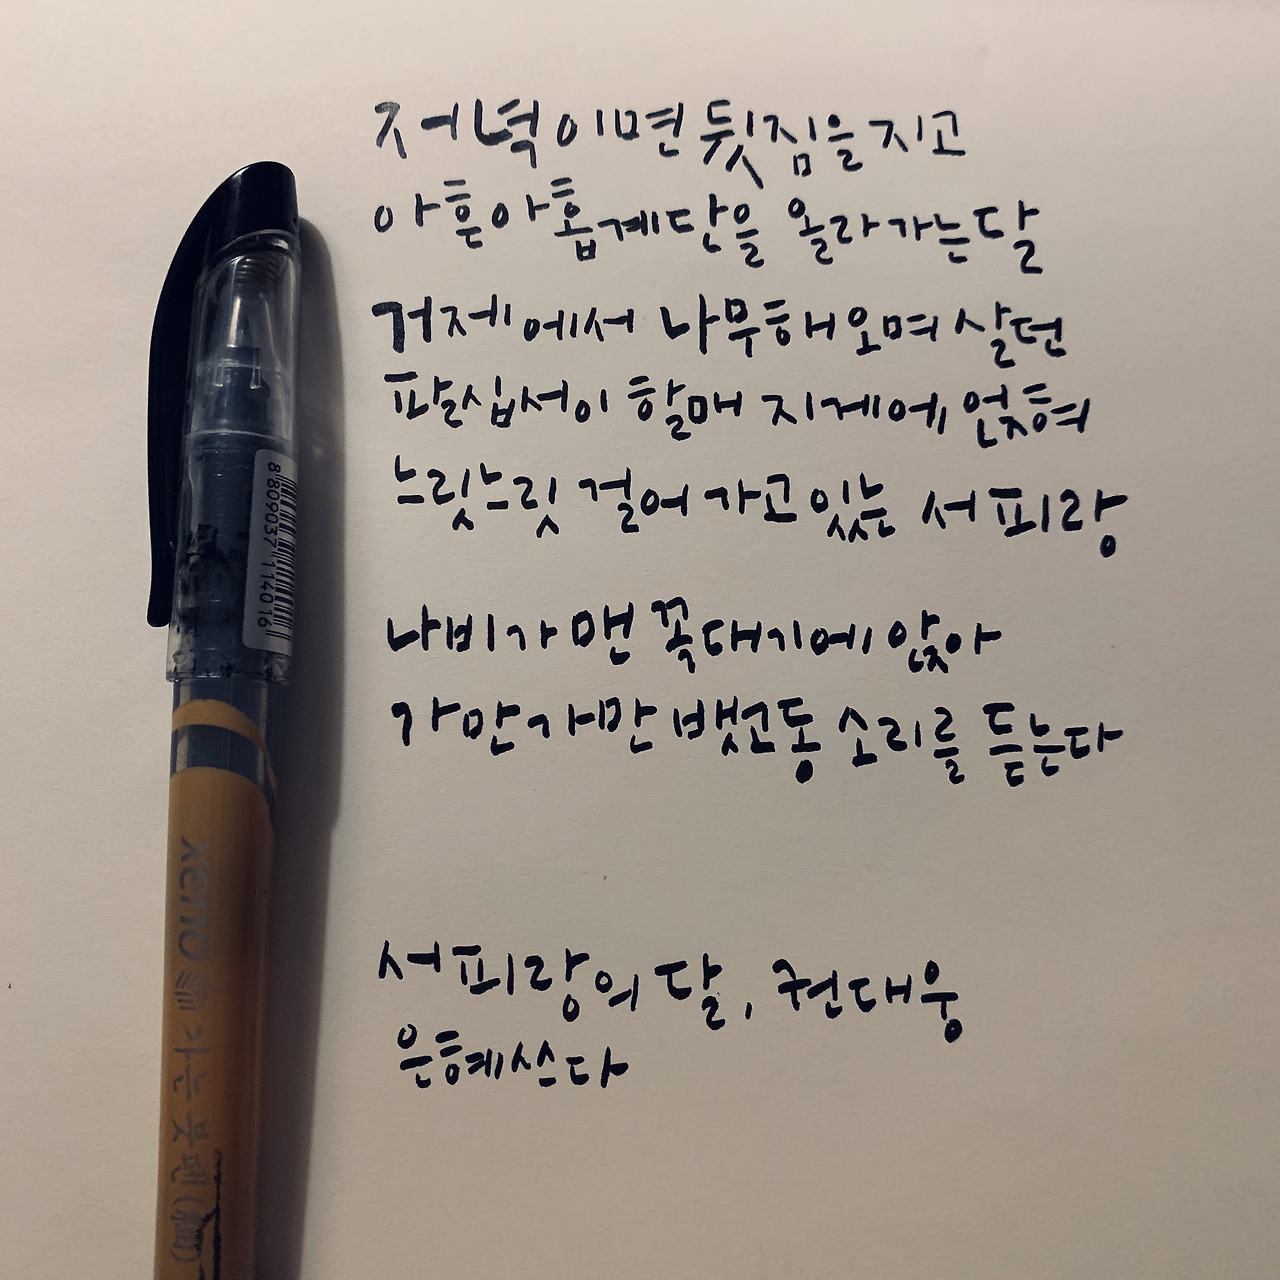 저녁이면 뒷짐을 지고
아흔아홉 계단을 올라가는 달
거제에서 나무해오며 살던
팔십서이 할매 지게에 얹혀
느릿느릿 걸어가고 있는 서피랑
나비가 맨 꼭대기에 앉아
가만가만 뱃고동 소리를 듣는다
서피랑의 달, 권대웅
은혜쓰다
8 809037 114016
xeno 細 가는붓펜(細)